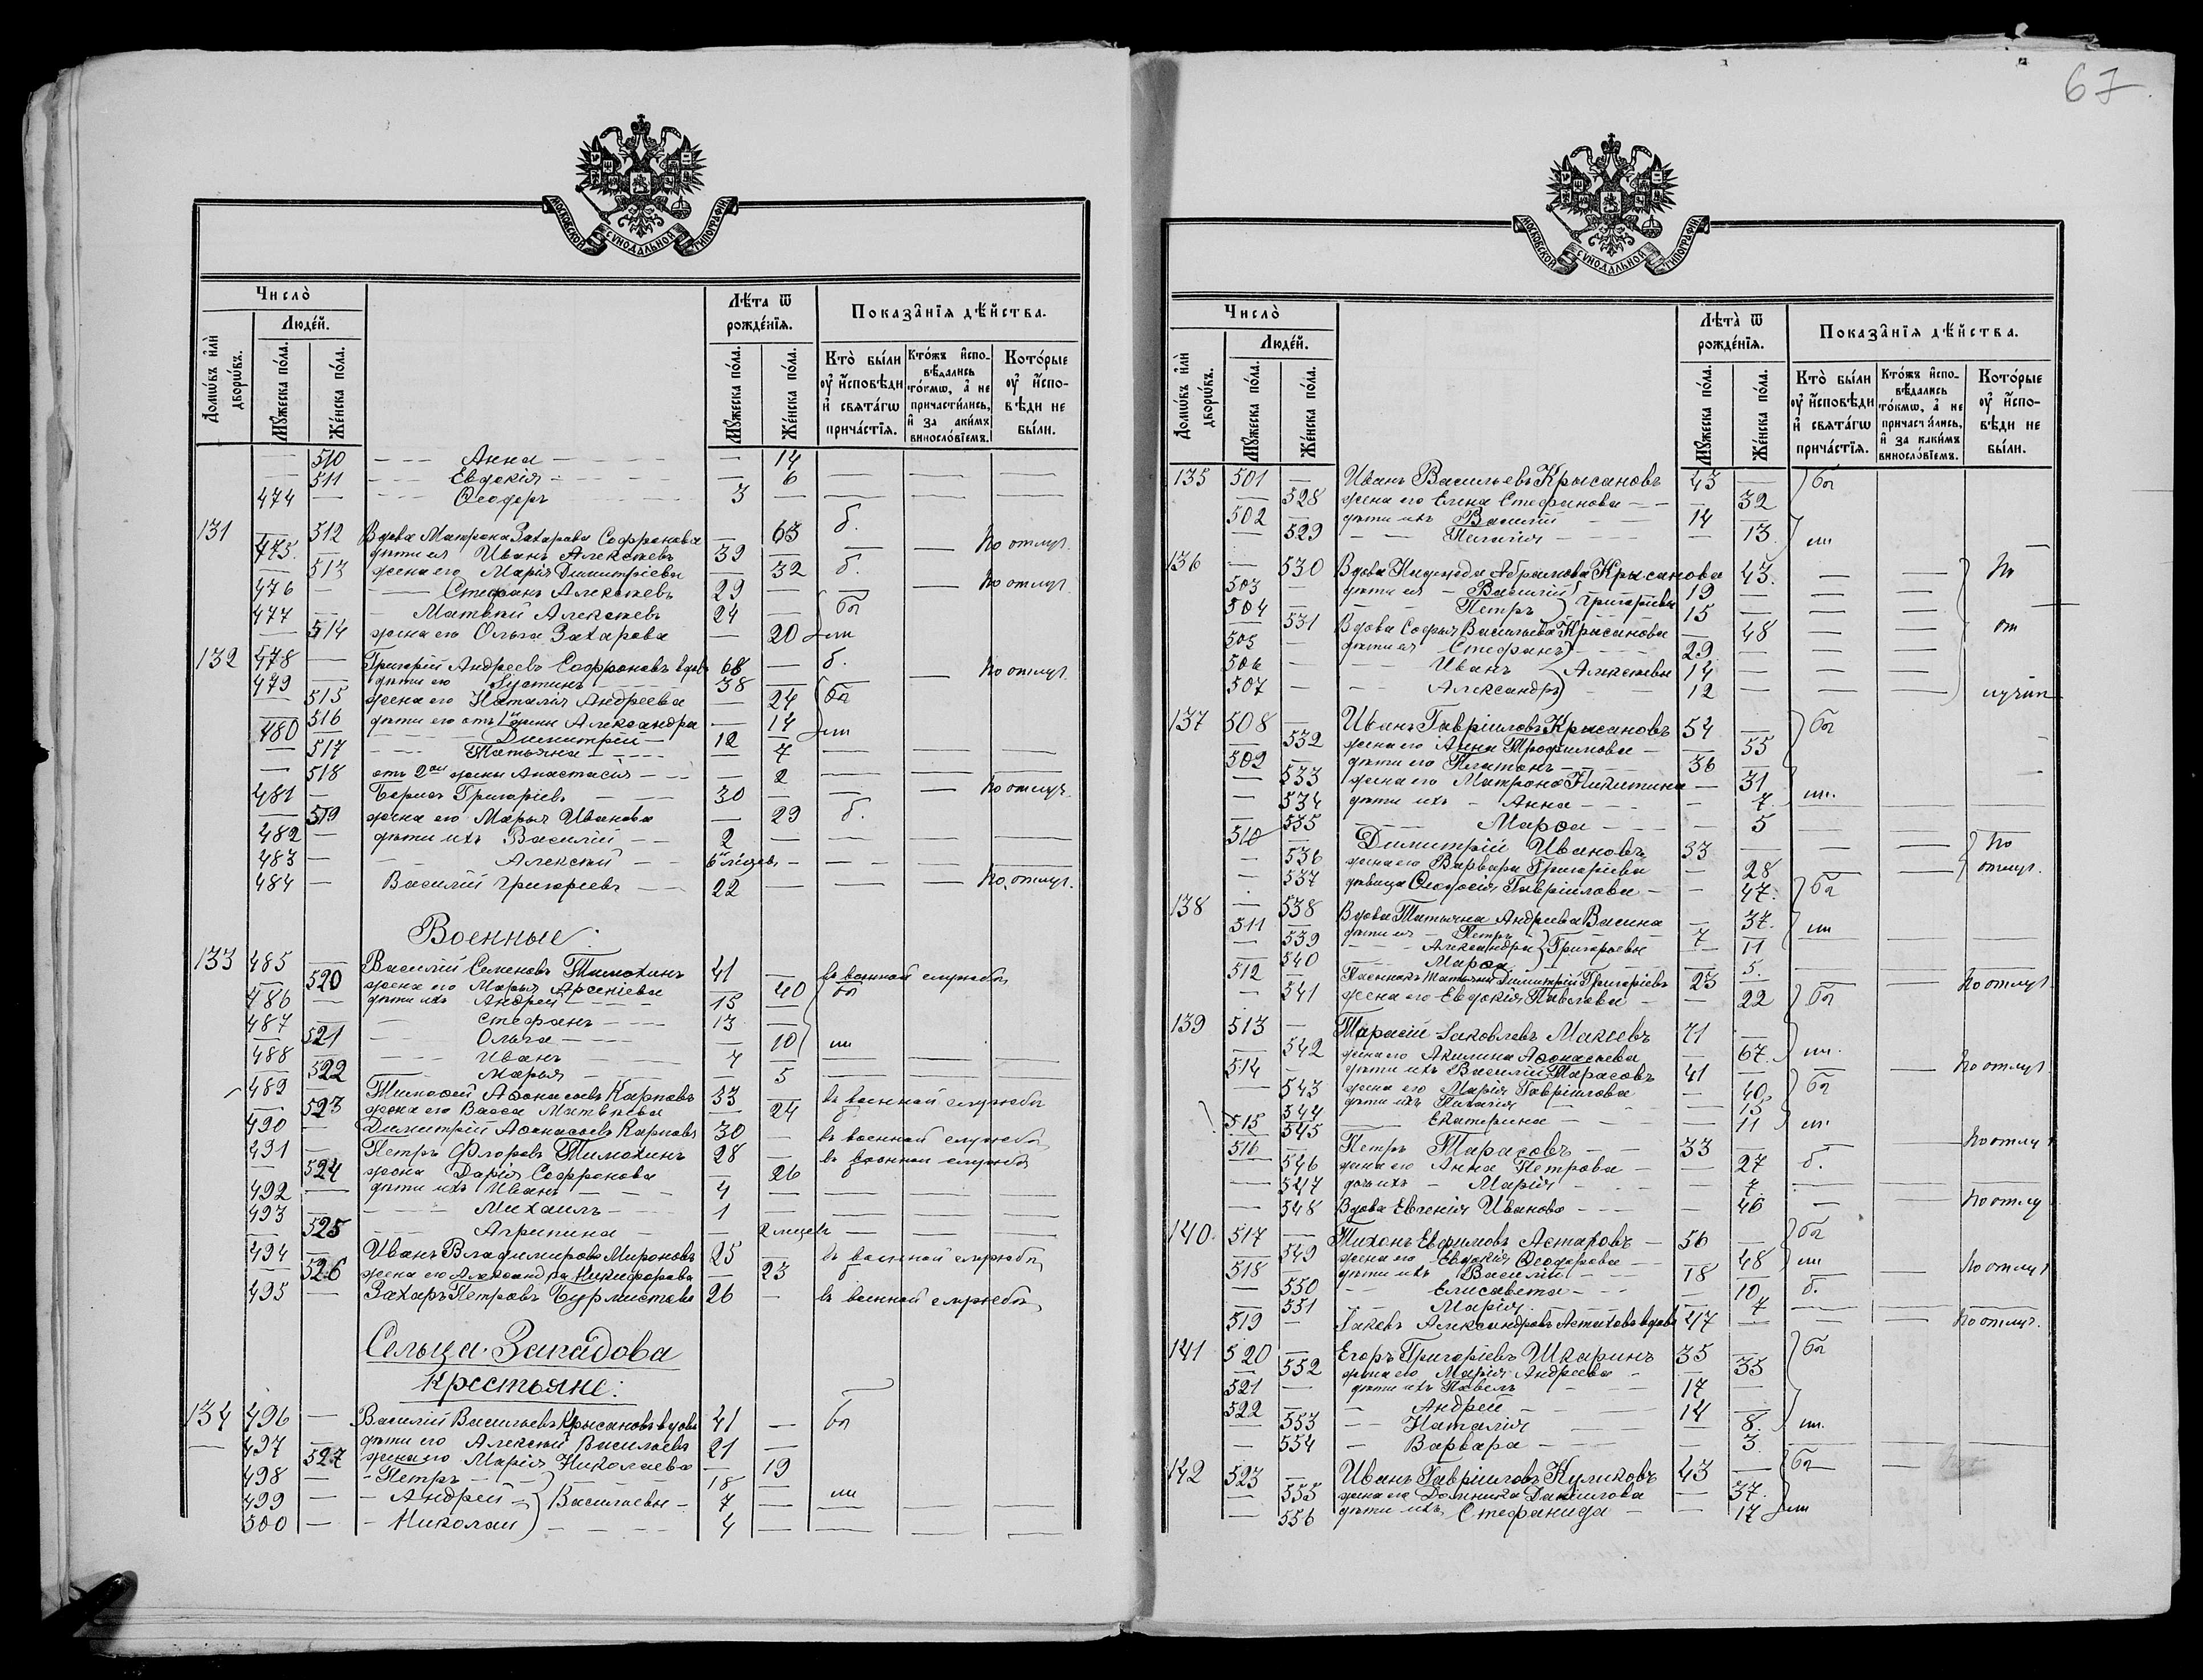 МОСКОВСКОЙ СѴНОДАЛЬНОЙ ТИПОГРАФІИ
Число̀
Лѣ́та ѿ рожде́нїѧ.
Показа̑нїѧ дѣ́йства.
Люде́й.
Домѡ́въ и҆лѝ дворѡ́въ.
Мꙋ́жеска по́ла.
Же́нска по́ла.
Мꙋ́жеска по́ла.
Же́нска по́ла.
Кто̀ бы́ли оу҆ и҆́сповѣди и҆ свѧта́гѡ прича́стїѧ.
Кто́жъ и҆спо-вѣ́дались то́кмѡ, а҆ не причасти́лись, и҆ за акимъ винosло́вїемъ.
Кото́рые оу҆ и҆́спо-вѣди не бы́ли.
510 — Анна — 14
511 — Евдокія — 6
474 — Ѳеодоръ 3 —
131 512 Вдова Матрона Захарова Софронова — 63 б.
475 дѣти ея Иванъ Алексѣевъ 39 — По отлуч.
513 жена его Марія Димитріева — 32 б.
476 — Стефанъ Алексѣевъ 29 — По отлуч.
477 — Матвѣй Алексѣевъ 24 — бы
514 жена его Ольга Захарова — 20 ли
132 478 — Григорій Андреевъ Софроновъ вдовъ 68 — б.
479 дѣти его Іустинъ 38 — По отлуч.
515 жена его Наталія Андреева — 24 бы
516 дѣти его отъ 1й жены Александра — 14
480 Димитрій 12 — ли
517 Татьяна — 7
518 отъ 2ой жены Анастасія — 2
481 — Борисъ Григоріевъ 30 — По отлуч.
519 жена его Марья Иванова — 29 б.
482 — дѣти ихъ Василій 2 —
483 — Алексѣй 6ти мѣсяц. —
484 — Василій Григоріевъ 22 — По отлуч.
Военные:
133 485 Василій Семеновъ Тимохинъ 41 — въ военной службѣ
520 жена его Марья Арсеніева — 40 бы
486 — дѣти ихъ Андрей 15 —
487 — Стефанъ 13 —
521 — Ольга — 10 ли
488 — Иванъ 7 —
522 — Марья — 5
489 Тимоѳей Аѳанасьевъ Карповъ 33 — въ военной службѣ
523 жена его Васса Матвѣева — 24 б
490 — Димитрій Аѳанасьевъ Карповъ 30 — въ военной службѣ
491 — Петръ Флоровъ Тимохинъ 28 — въ военной службѣ
524 жена Дарія Софронова — 26 б
492 — дѣти ихъ Иванъ 4 —
493 — Михаилъ 1 —
525 — Агрипина — 2 мѣсец
494 — Иванъ Владимировъ Мироновъ 25 — въ военной службѣ
526 жена его Александра Никифорова — 23 б
495 — Захаръ Петровъ Бурмистовъ 26 — въ военной службѣ
Сельца Западова
Крестьяне:
134 496 — Василій Васильевъ Крысановъ вдовъ 41 — бы
497 — дѣти его Алексѣй Васильевъ 21 —
527 жена его Марія Николаева — 19
498 — Петръ 18 —
499 — Андрей } Васильевы 7 — ли
500 — Николай 4 —
67
МОСКОВСКОЙ СѴНОДАЛЬНОЙ ТИПОГРАФІИ
Число̀
Лѣта̀ ѿ рожде́нїѧ.
Показа̑нїѧ дѣ́йства.
Люде́й.
Домѡ́въ и҆лѝ дворѡ́въ.
Мꙋ́жеска по́ла.
Же́нска по́ла.
Мꙋ́жеска по́ла.
Же́нска по́ла.
Кто̀ бы́ли оу҆ и҆́сповѣди и҆ свѧта́гѡ прича́стїѧ.
Кто́жъ и҆спо-вѣ́дались то́кмѡ, а҆ не причасти́лись, и҆ за каки́мъ винosло́вїемъ.
Кото́рые оу҆ и҆́спо-вѣди не бы́ли.
135 501 — Иванъ Васильевъ Крысановъ 43 — бы
528 жена его Елена Стефанова — 32
502 дѣти ихъ Василій 14 —
529 Пелагія — 13 ли
136 — 530 Вдова Надежда Абрамова Крысанова 43. По
503 — дѣти ея Василій } Григорьевы 19 —
504 — Петръ 15 —
531 Вдова Софья Васильева Крысанова — 48 от
505 — дѣти ея Стефанъ 29 —
506 — Иванъ } Алексѣевы 14 —
507 — Александръ 12 — лучкѣ
137 508 — Иванъ Гавріиловъ Крысановъ 54 — бы
532 жена его Анна Трофимова — 55
509 дѣти его Платонъ 36 —
533 жена его Матрона Никитина — 31
534 дѣти ихъ Анна — 7 ли.
535 Марѳа — 5
510 Димитрій Ивановъ 33 — По
536 жена его Варвара Григоріева — 28 отлуч.
537 дѣвица Ѳеодосія Гавріилова — 47. бы
138 — 538 Вдова Татьяна Андреева Васина — 37.
511 дѣти ея Петръ } Григорьевы 7 — ли
539 Александра — 11
540 Марѳа — 5.
512 Пасынокъ Татьяны Димитрій Григоріевъ 23 — По отлуч
541 жена его Евдокія Павлова — 22 бы
139 513 — Тарасій Іаковлевъ Макеевъ 71 —
542 жена его Акилина Аѳонасьева — 67. ли.
514 дѣти ихъ Василій Тарасовъ 41 — По отлуч
543 жена его Марія Гавріилова — 40 бы
544 дѣти ихъ Пелагія — 15
515 545 Екатерина — 11 ли.
516 Петръ Тарасовъ 33 — По отлуч
546 жена его Анна Петрова — 27 б.
547 дочь ихъ Марія — 7
548 Вдова Евгенія Иванова — 46 По отлу
140. 517 — Тихонъ Евфимовъ Астаховъ 56 — бы
549 жена его Евдокія Ѳеодорова — 48 ли
518 дѣти ихъ Василій 18 — По отлуч
550 Елисавета — 10 б.
551 Марія — 7
519 — Іаковъ Александровъ Астаховъ вдовъ 47 — По отлуч.
141 520 — Егоръ Григоріевъ Шкаринъ 35 — бы
552 жена его Марія Андреева — 35
521 — дѣти ихъ Павелъ 17 —
522 — Андрей 14 —
553 Наталія — 8. ли.
554 Варвара — 3
142 523 — Иванъ Гавріиловъ Куликовъ 43 — бы
555 жена его Домника Даніилова — 37.
556 дѣти ихъ Стефанида — 17 ли